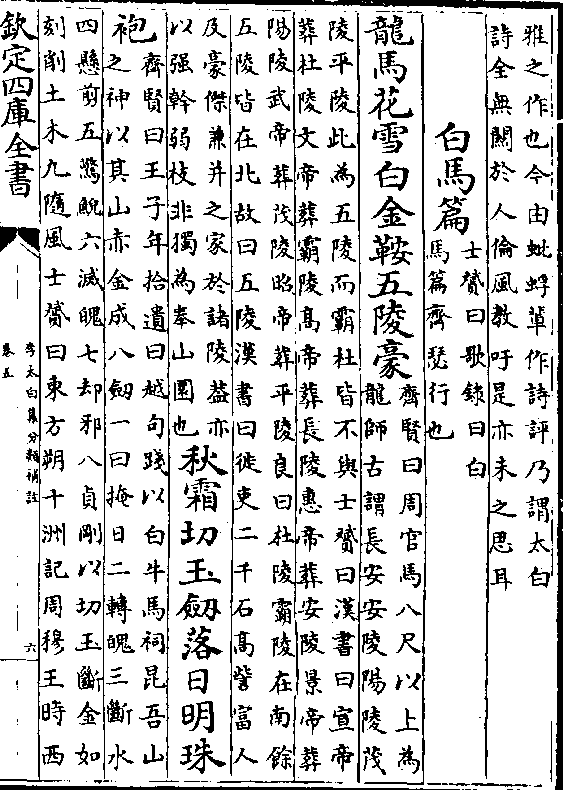 雅之作也今由蚍蜉軰作詩評乃謂太白
詩全無關於人倫風教吁是亦未之思耳
白馬篇
士贇曰歌錄曰白
馬篇齊瑟行也
龍馬花雪白金鞍五陵豪
齊賢曰周官馬八尺以上為
龍師古謂長安安陵陽陵茂
陵平陵此為五陵而霸杜皆不與士贇曰漢書曰宣帝
葬杜陵文帝葬霸陵髙帝葬長陵惠帝葬安陵景帝葬
陽陵武帝葬茂陵昭帝葬平陵良曰杜陵霸陵在南餘
五陵皆在北故曰五陵漢書曰徙吏二千石髙訾富人
及豪傑兼并之家於諸陵葢亦
以强幹弱枝非獨為奉山園也
秋霜切玉劒落日明珠
袍
齊賢曰王子年拾遺曰越句踐以白牛馬祠昆吾山
之神以其山赤金成八劒一曰掩日二轉魄三斷水
四懸剪五驚鯢六滅魄七却邪八貞剛以切玉斷金如
刻削土木九隨風士贇曰東方朔十洲記周穆王時西
欽定四庫全書
李太白集分類補註
卷五
六